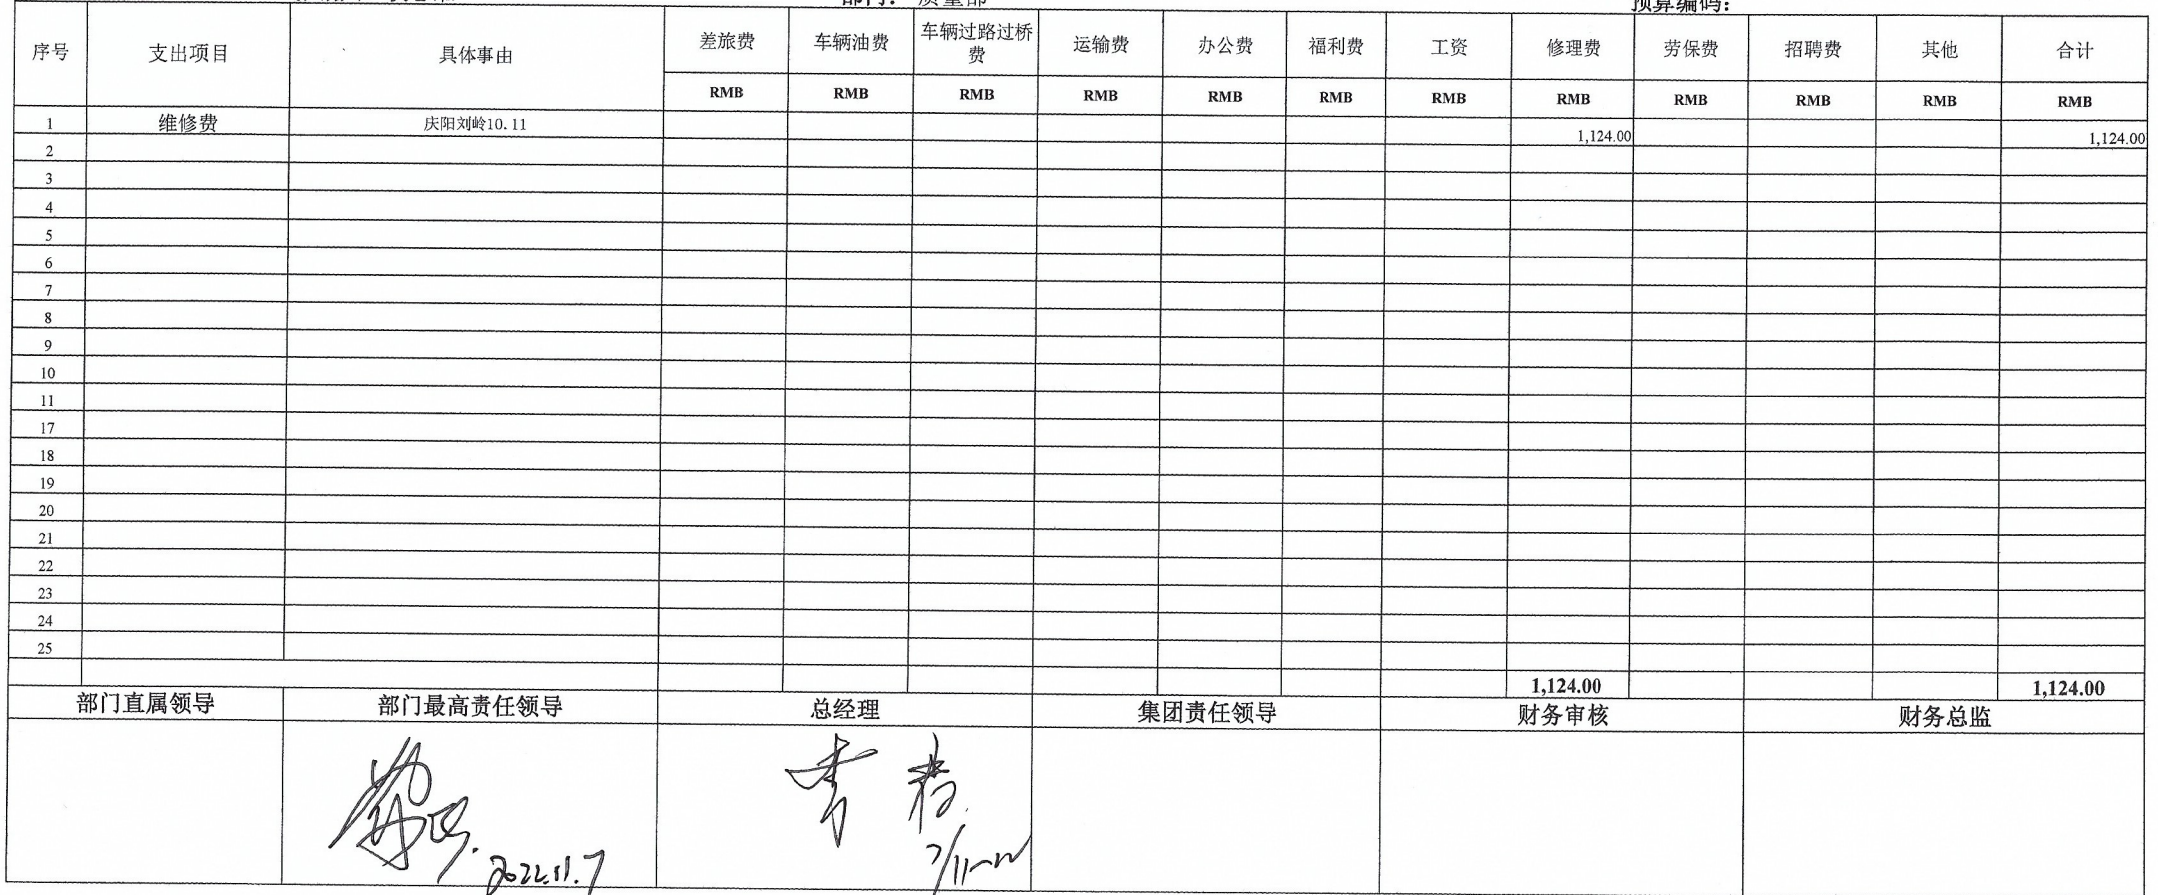 部门： 质量部 预算编码：
序号 支出项目 具体事由 差旅费 车辆油费 车辆过路过桥费 运输费 办公费 福利费 工资 修理费 劳保费 招聘费 其他 合计
RMB RMB RMB RMB RMB RMB RMB RMB RMB RMB RMB RMB
1 维修费 庆阳刘岭10.11 1,124.00 1,124.00
2
3
4
5
6
7
8
9
10
11
17
18
19
20
21
22
23
24
25
1,124.00 1,124.00
部门直属领导 部门最高责任领导 总经理 集团责任领导 财务审核 财务总监
2022.11.7 7/11-22